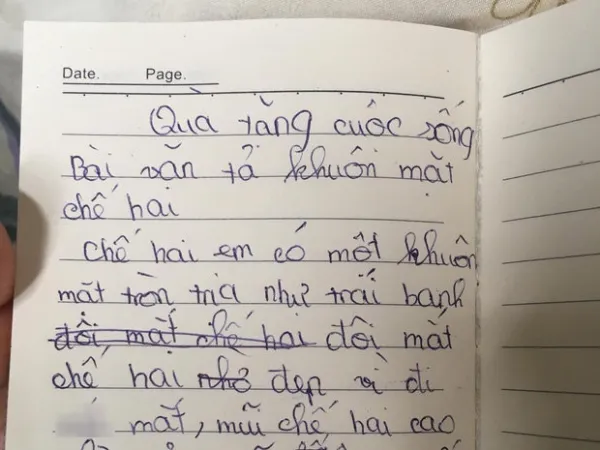 Date. Page.
Quà tặng cuộc sống
Bài văn tả khuôn mặt
chế hai
Chế hai em có một khuôn
mặt tròn trịa như trái banh
đôi mắt chế hai đôi mắt
chế hai nhờ đẹp vì đi
mắt, mũi chế hai cao